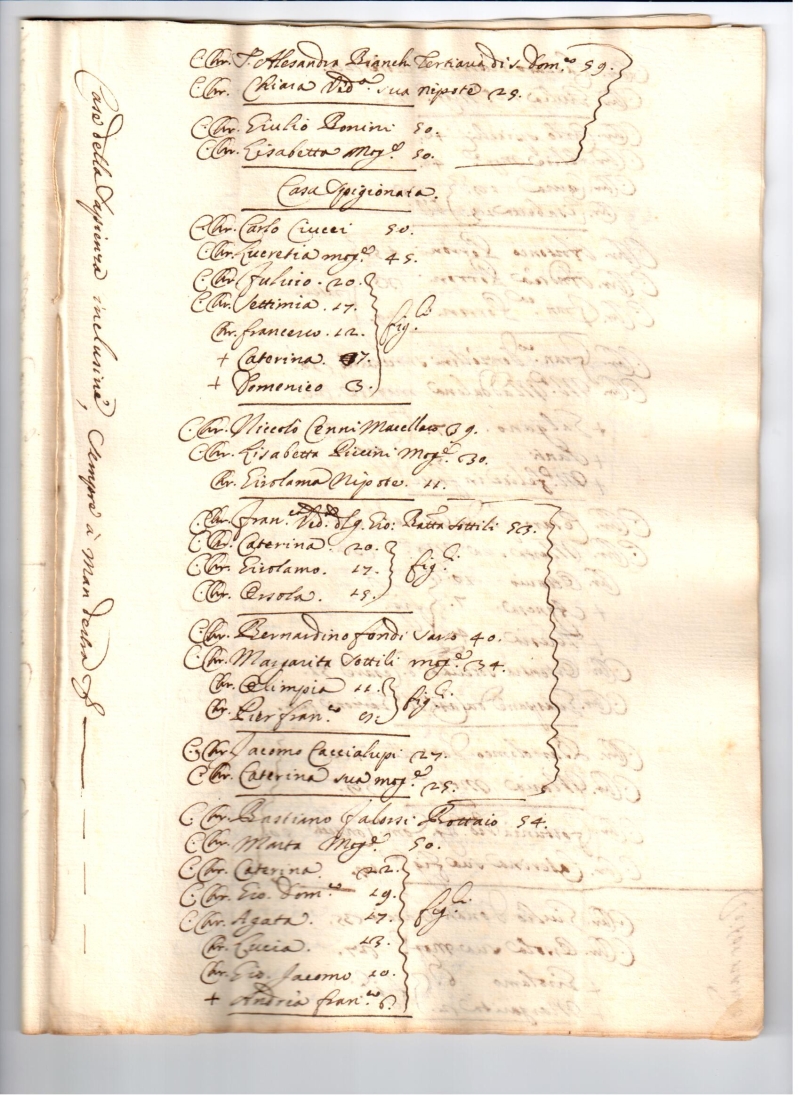 Case della Sapienza inclusiue, sempre à man destra
C. Chr. S. Alesandra Bianchi Tertiaria di S. Dom.co 59.
C. Chr. Chiara Ved.a sua nipote 29.
C. Chr. Giulio Bonini 50.
C. Chr. Lisabetta mog.e 50.
Casa Spigionata.
C. Chr. Carlo Ciucci 50.
C. Chr. Lucretia mog.e 45.
C. Chr. Fuluio. 20.
C. Chr. Settimia. 17.
Chr. francesco. 12.
+ Caterina. 7.
+ Domenico 3.
fig.li
C. Chr. Niccolò Cenni Macellaro 39.
C. Chr. Lisabetta Piccini Mog.e 30.
Chr. Girolama Nipote. 11.
C. Chr. fran.ca Ved.a d Gio. Batta Sottili 53.
C. Chr. Caterina. 20.
C. Chr. Girolamo. 17.
C. Chr. Orsola. 15.
fig.li
C. Chr. Bernardino fondi Sarto 40.
C. Chr. Margarita Sottili mog.e 34.
Chr. Olimpia 11.
Chr. Pierfran.co 9.
fig.li
C. Chr. Jacomo Caccialupi 27.
C. Chr. Caterina sua mog.e 25.
C. Chr. Bastiano falorsi Bottaio 54.
C. Chr. Marta Mog.e 50.
C. Chr. Caterina. 22.
C. Chr. Gio. Dom.co 19.
C. Chr. Agata. 17.
Chr. Lucia. 13.
Chr. Gio. Jacomo 10.
+ Andria fran.co 6.
fig.li